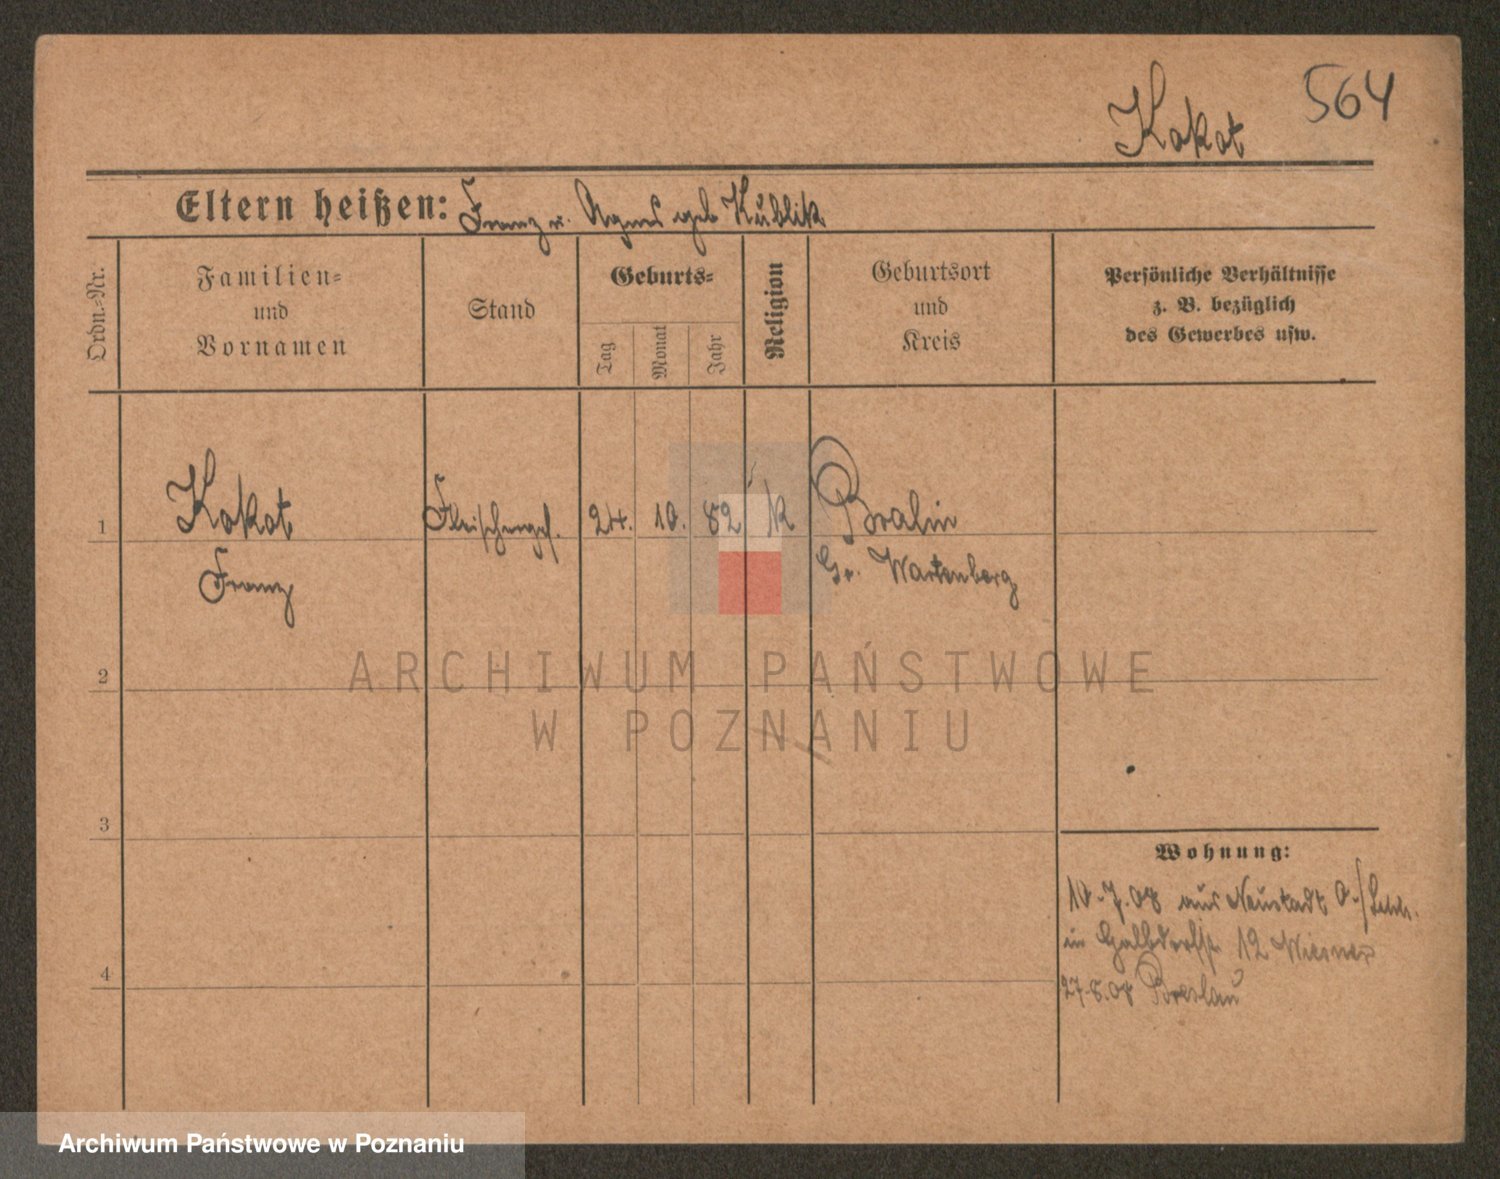 564
Kokot
Eltern heißen: Franz u. Agnes geb Kublik
Ordn.=Nr.
Familien=
und
Vornamen
Stand
Geburts=
Tag
Monat
Jahr
Religion
Geburtsort
und
Kreis
Persönliche Verhältnisse
z. B. bezüglich
des Gewerbes usw.
1
Kokot
Franz
Fleischerges.
24. 10. 82
k
Bralin
Gr. Wartenberg
2
3
4
Wohnung:
10.7.08 aus Neustadt O./Schl.
in 12 Wiesner
27.8.08 Breslau
ARCHIWUM PAŃSTWOWE
W POZNANIU
Archiwum Państwowe w Poznaniu